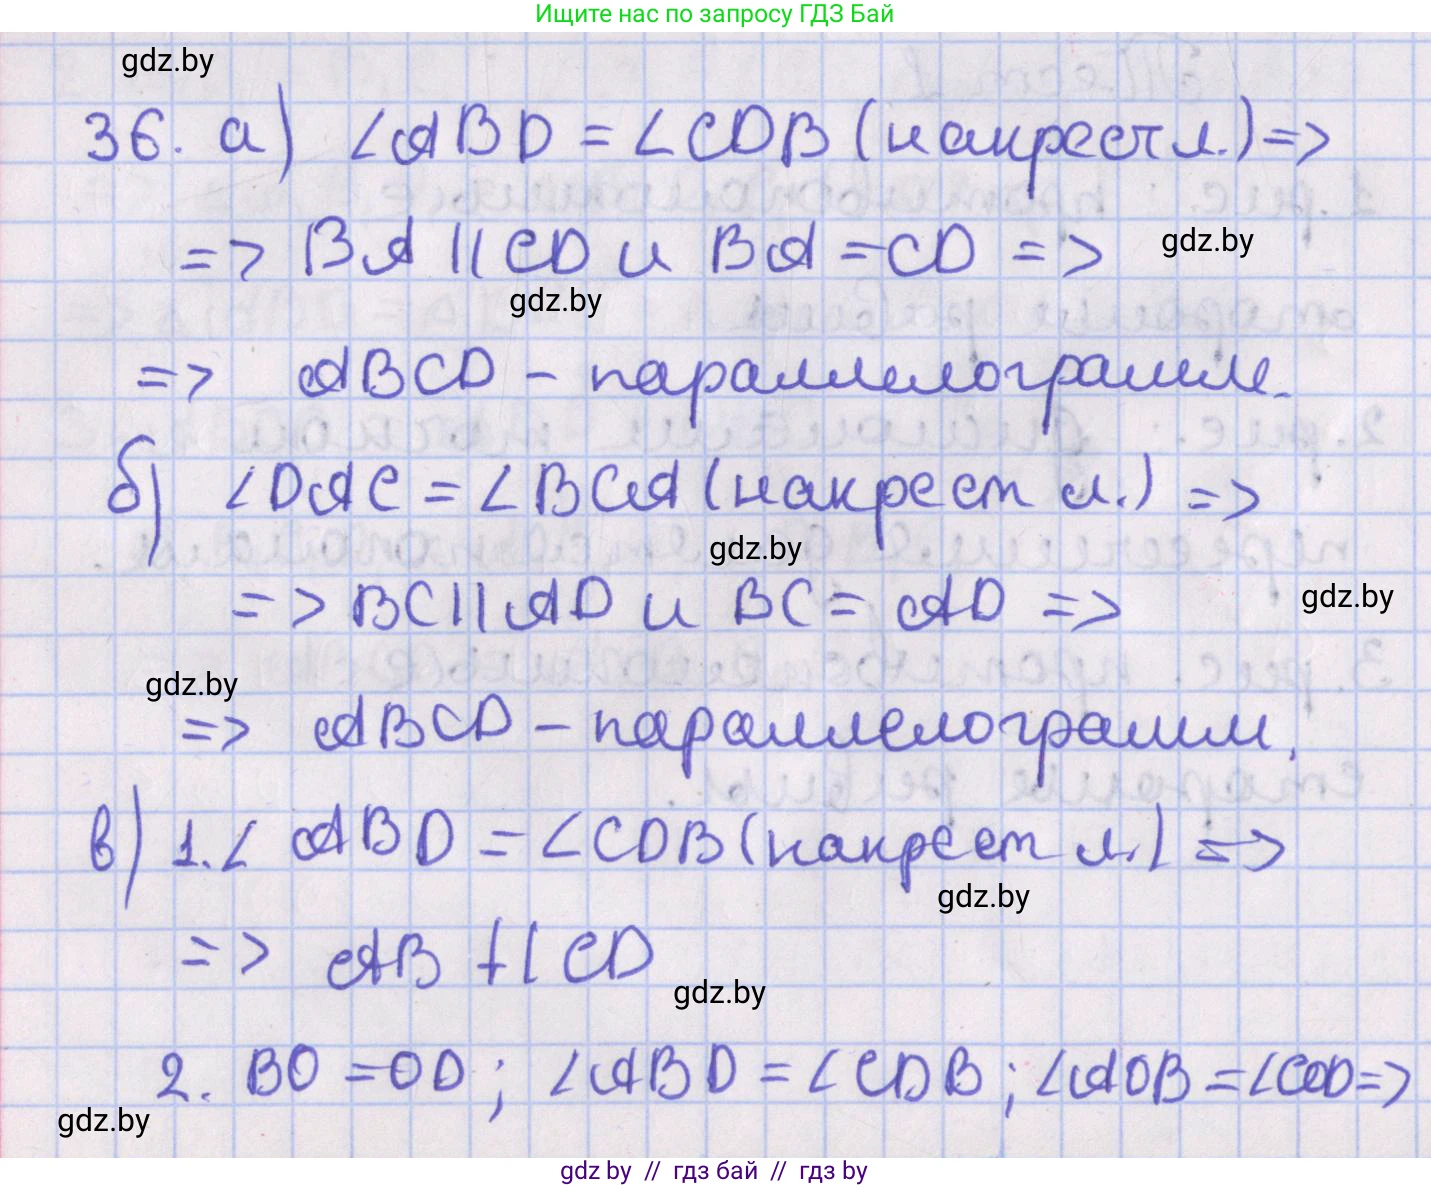 Ищите нас по запросу ГДЗ Бай
gdz.by
36. а) ∠ABD = ∠CDB (накрест л.) =>
=> BA || CD и BA = CD =>
gdz.by
gdz.by
=> ABCD - параллелограмм.
б) ∠DAC = ∠BCA (накрест л.) =>
gdz.by
=> BC || AD и BC = AD =>
gdz.by
gdz.by
=> ABCD - параллелограмм.
в) 1. ∠ABD = ∠CDB (накрест л.) =>
gdz.by
=> AB || CD
gdz.by
2. BO = OD; ∠ABD = ∠CDB; ∠AOB = ∠COD =>
gdz.by
gdz by // гдз бай // гдз by